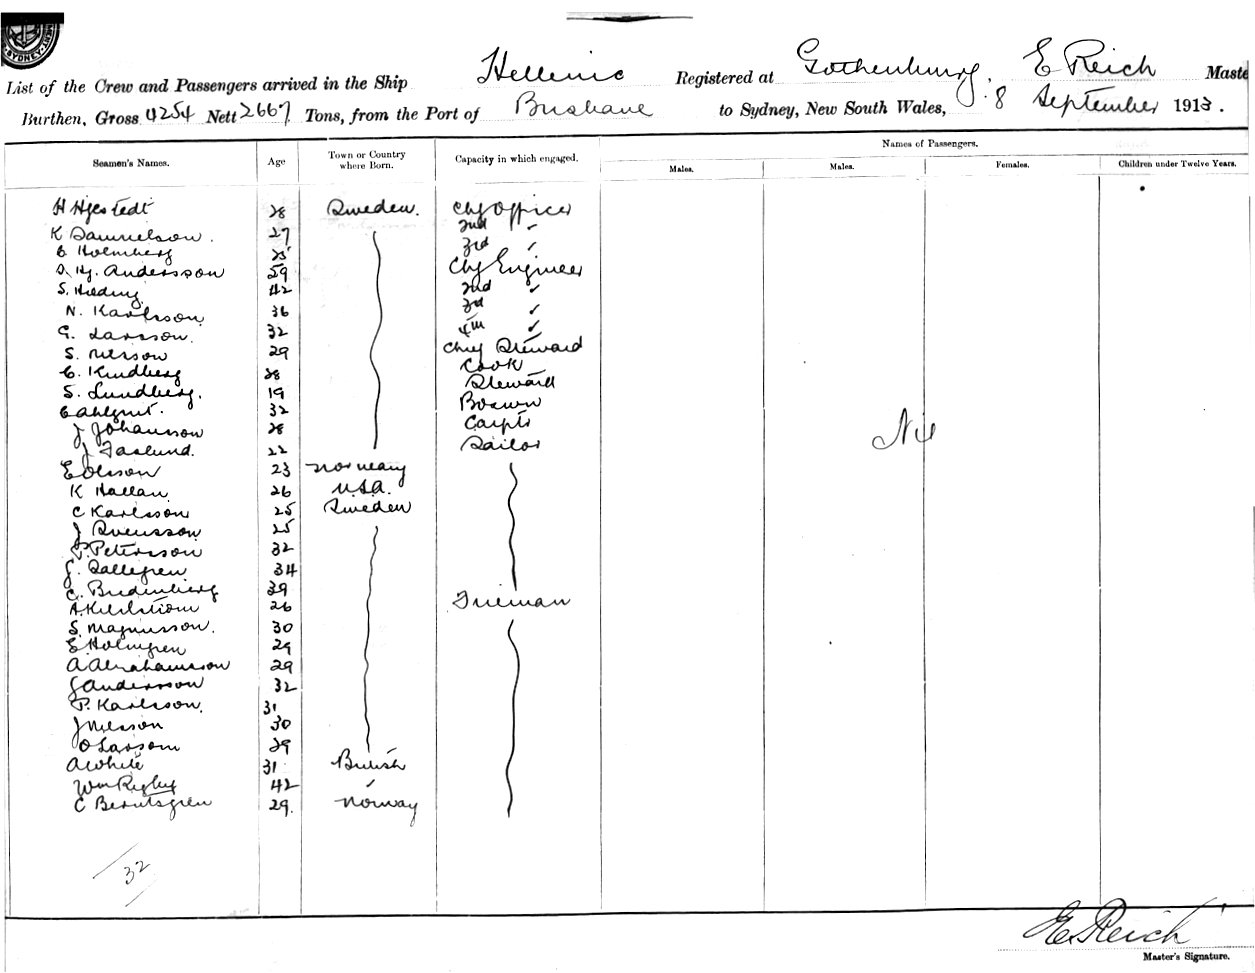 SYDNEY
List of the Crew and Passengers arrived in the Ship Hellenic Registered at Gothenburg, E Reich Maste
Burthen, Gross 4254 Nett 2667 Tons, from the Port of Brisbane to Sydney, New South Wales, 8 September 1913.
Names of Passengers.
Seamen's Names. Age Town or Country where Born. Capacity in which engaged. Males. Males. Females. Children under Twelve Years.
H Hjestedt 28 Sweden. Chf Officer
K Samuelson. 27 2nd ✓
E Holmberg 25 3rd ✓
Hj. Andersson 59 Chf Engineer
S. Heding 42 2nd ✓
N. Karlsson 36 3rd ✓
G. Larsson. 32 4th ✓
S. Nilsson 29 Chief Steward
C. Kindberg 28 Cook
S. Lundberg. 19 Steward
32 Boswn
J Johansson 28 Carptr
J Faslund. 22 Sailor
Nil
E Olsson 23 Norway
K Hallan 26 U.S.A.
C Karlsson 25 Sweden
J Svensson 25
P. Petersson 32
G. Sallegren 34
C. 39
A. 26 Fireman
S. Magnusson. 30
E. Holmgren 29
A Abrahamsson 29
G Andersson 32
P. Karlsson. 31
J Nilsson 30
O Larsson 29
A White 31 British
Wm Rigby 42 ✓
C Berntsgren 29. Norway
32
E. Reich
Master's Signature.